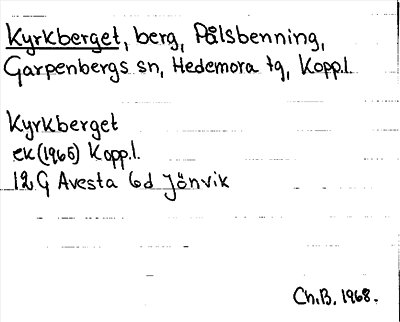 Kyrkberget, berg, Pålsbenning,
Garpenbergs sn, Hedemora tg, Kopp.l.
Kyrkberget
ek (1965) Kopp.l.
12 G Avesta 6d Jönvik
Ch.B. 1968.